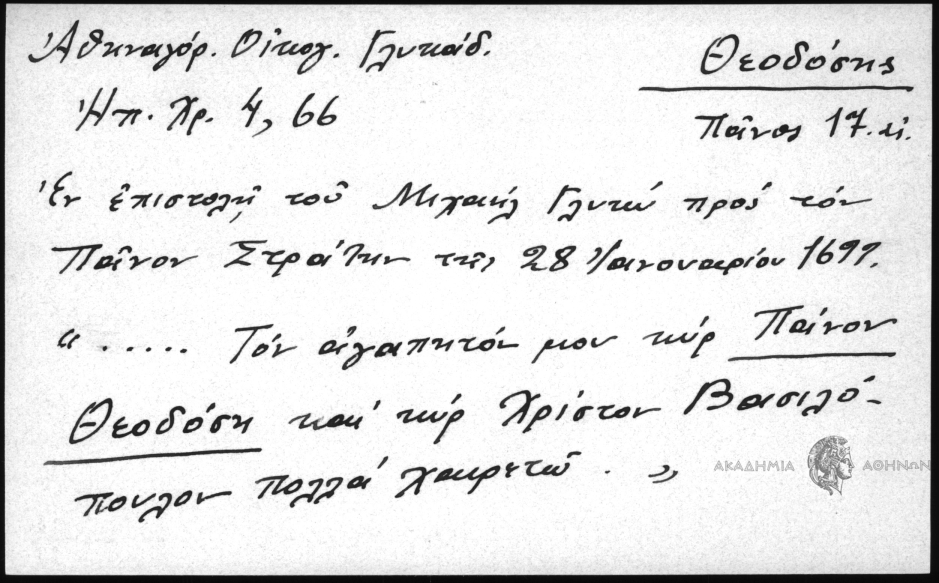 Ἀθηναγόρ. Οἰκογ. Γλυκάδ.
Θεοδόσης
Ἠπ. Χρ. 4, 66
Πάνος 17. αἰ.
Ἐν ἐπιστολῇ τοῦ Μιχαήλ Γλυκύ πρός τόν
Πᾶνον Στράτην τῆς 28 Ἰανουαρίου 1699.
“ ..... Τόν ἀγαπητόν μου κύρ Πάνον
Θεοδόση καί κύρ Χρίστον Βασιλό-
πουλον πολλά χαιρετῶ . „
ΑΚΑΔΗΜΙΑ ΑΘΗΝΩΝ